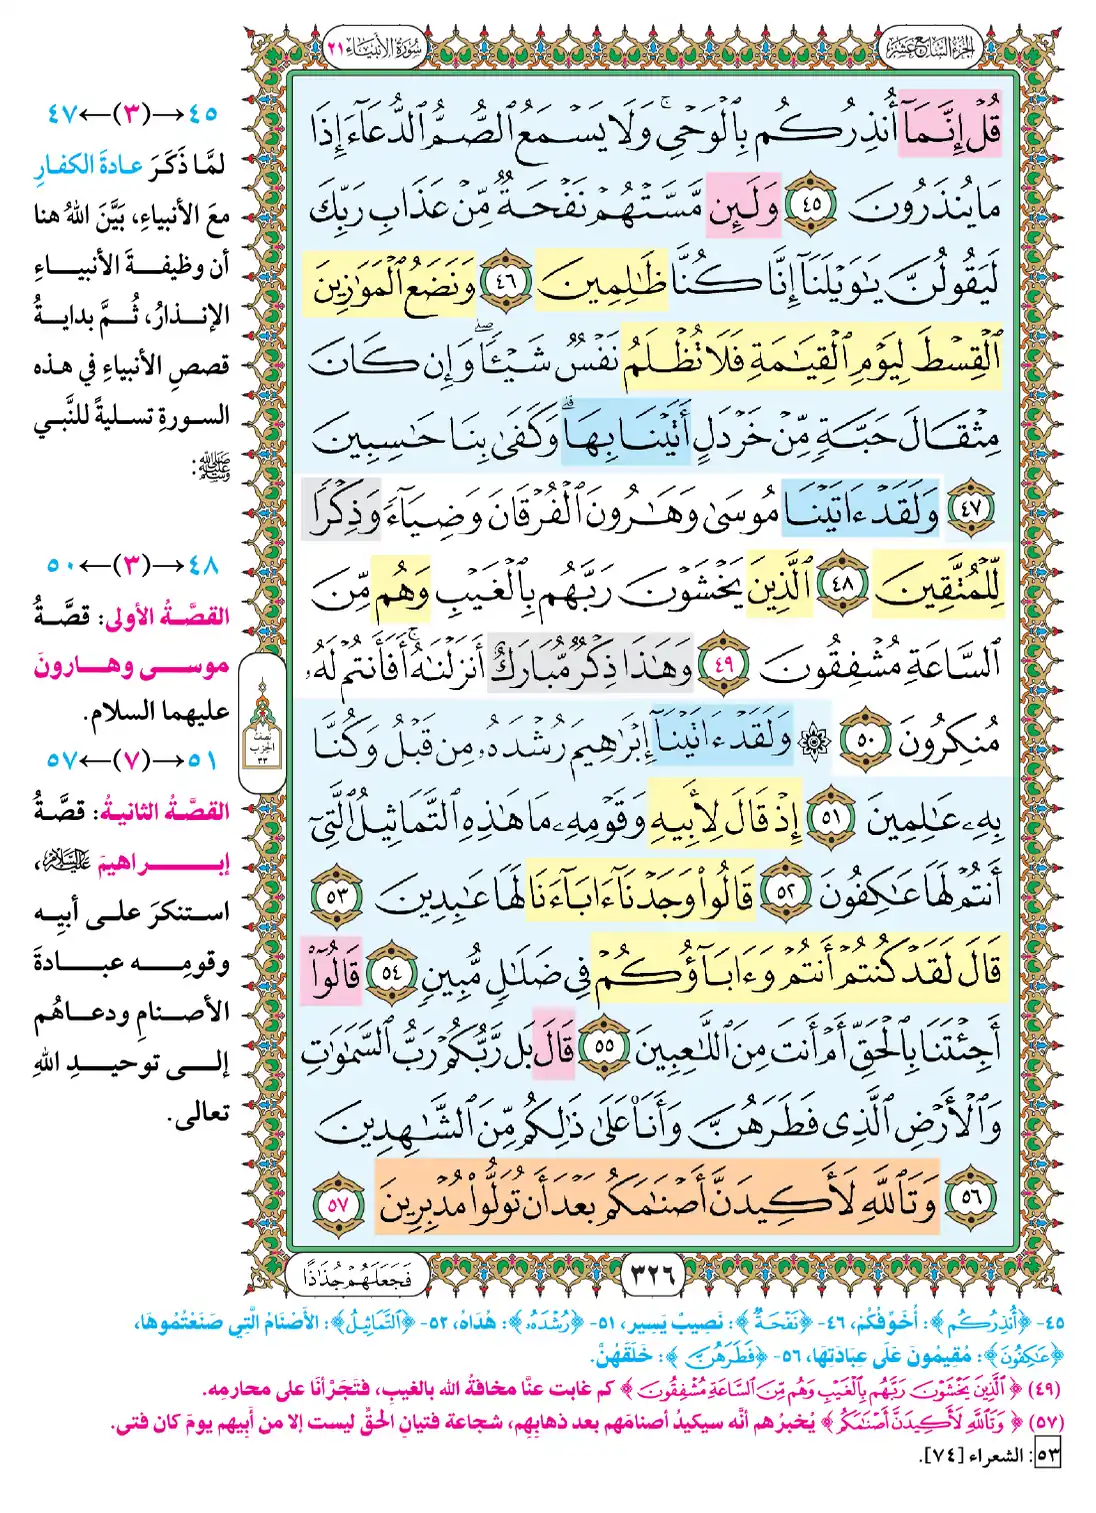 الجزء السابع عشر
سورة الأنبياء ٢١
قُلْ إِنَّمَآ أُنذِرُكُم بِٱلْوَحْىِ ۚ وَلَا يَسْمَعُ ٱلصُّمُّ ٱلدُّعَآءَ إِذَا
مَا يُنذَرُونَ ٤٥ وَلَئِن مَّسَّتْهُمْ نَفْحَةٌ مِّنْ عَذَابِ رَبِّكَ
لَيَقُولُنَّ يَٰوَيْلَنَآ إِنَّا كُنَّا ظَٰلِمِينَ ٤٦ وَنَضَعُ ٱلْمَوَٰزِينَ
ٱلْقِسْطَ لِيَوْمِ ٱلْقِيَٰمَةِ فَلَا تُظْلَمُ نَفْسٌ شَيْـًٔا ۖ وَإِن كَانَ
مِثْقَالَ حَبَّةٍ مِّنْ خَرْدَلٍ أَتَيْنَا بِهَا ۗ وَكَفَىٰ بِنَا حَٰسِبِينَ
٤٧ وَلَقَدْ ءَاتَيْنَا مُوسَىٰ وَهَٰرُونَ ٱلْفُرْقَانَ وَضِيَآءً وَذِكْرًا
لِّلْمُتَّقِينَ ٤٨ ٱلَّذِينَ يَخْشَوْنَ رَبَّهُم بِٱلْغَيْبِ وَهُم مِّنَ
ٱلسَّاعَةِ مُشْفِقُونَ ٤٩ وَهَٰذَا ذِكْرٌ مُّبَارَكٌ أَنزَلْنَٰهُ ۚ أَفَأَنتُمْ لَهُۥ
مُنكِرُونَ ٥٠ ۞ وَلَقَدْ ءَاتَيْنَآ إِبْرَٰهِيمَ رُشْدَهُۥ مِن قَبْلُ وَكُنَّا
بِهِۦ عَٰلِمِينَ ٥١ إِذْ قَالَ لِأَبِيهِ وَقَوْمِهِۦ مَا هَٰذِهِ ٱلتَّمَاثِيلُ ٱلَّتِىٓ
أَنتُمْ لَهَا عَٰكِفُونَ ٥٢ قَالُوا۟ وَجَدْنَآ ءَابَآءَنَا لَهَا عَٰبِدِينَ ٥٣
قَالَ لَقَدْ كُنتُمْ أَنتُمْ وَءَابَآؤُكُمْ فِى ضَلَٰلٍ مُّبِينٍ ٥٤ قَالُوٓا۟
أَجِئْتَنَا بِٱلْحَقِّ أَمْ أَنتَ مِنَ ٱللَّٰعِبِينَ ٥٥ قَالَ بَل رَّبُّكُمْ رَبُّ ٱلسَّمَٰوَٰتِ
وَٱلْأَرْضِ ٱلَّذِى فَطَرَهُنَّ وَأَنَا۠ عَلَىٰ ذَٰلِكُم مِّنَ ٱلشَّٰهِدِينَ
٥٦ وَتَٱللَّهِ لَأَكِيدَنَّ أَصْنَٰمَكُم بَعْدَ أَن تُوَلُّوا۟ مُدْبِرِينَ ٥٧
٣٢٦
فَجَعَلَهُمْ جُذَٰذًا
٤٥→(٣)←٤٧
لمَّا ذَكَرَ عادةَ الكفارِ
معَ الأنبياءِ، بَيَّنَ اللهُ هنا
أن وظيفةَ الأنبياءِ
الإنذارُ، ثُمَّ بدايةُ
قصصِ الأنبياءِ في هذه
السورةِ تسليةً للنَّبي
ﷺ:
٤٨→(٣)←٥٠
القصَّةُ الأولى: قصَّةُ
موسى وهارونَ
عليهما السلام.
نصف
الحزب
٣٣
٥١→(٧)←٥٧
القصَّةُ الثانيةُ: قصَّةُ
إبراهيمَ عليه السلام،
استنكرَ على أبيه
وقومِه عبادةَ
الأصنامِ ودعاهُم
إلى توحيدِ اللهِ
تعالى.
٤٥- ﴿أُنذِرُكُم﴾: أُخَوِّفُكُمْ، ٤٦- ﴿نَفْحَةٌ﴾: نَصِيبٌ يَسِير، ٥١- ﴿رُشْدَهُۥ﴾: هُدَاهُ، ٥٢- ﴿ٱلتَّمَاثِيلُ﴾: الأَصْنَامُ الَّتِي صَنَعْتُمُوهَا،
﴿عَٰكِفُونَ﴾: مُقِيمُونَ عَلَى عِبَادَتِهَا، ٥٦- ﴿فَطَرَهُنَّ﴾: خَلَقَهُنَّ.
(٤٩) ﴿ٱلَّذِينَ يَخْشَوْنَ رَبَّهُم بِٱلْغَيْبِ وَهُم مِّنَ ٱلسَّاعَةِ مُشْفِقُونَ﴾ كم غابت عنَّا مخافةُ الله بالغيبِ، فتَجَرَّأنا على محارمِه.
(٥٧) ﴿وَتَٱللَّهِ لَأَكِيدَنَّ أَصْنَٰمَكُم﴾ يُخبرُهم أنَّه سيكيدُ أصنامَهم بعد ذهابِهم، شجاعة فتيانِ الحقِّ ليست إلا من أبيهم يومَ كان فتى.
٥٣: الشعراء [٧٤].